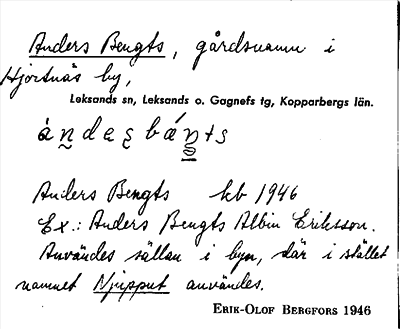 Anders Bengts, gårdsnamn i
Hjortnäs by,
Leksands sn, Leksands o. Gagnefs tg, Kopparbergs län.
Anders Bengts kb 1946
Ex.: Anders Bengts Albin Eriksson.
Användes sällan i byn, där i stället
namnet Njupput användes.
ERIK-OLOF BERGFORS 1946